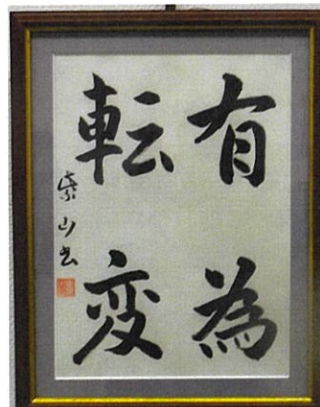 有為
転変
紫山書